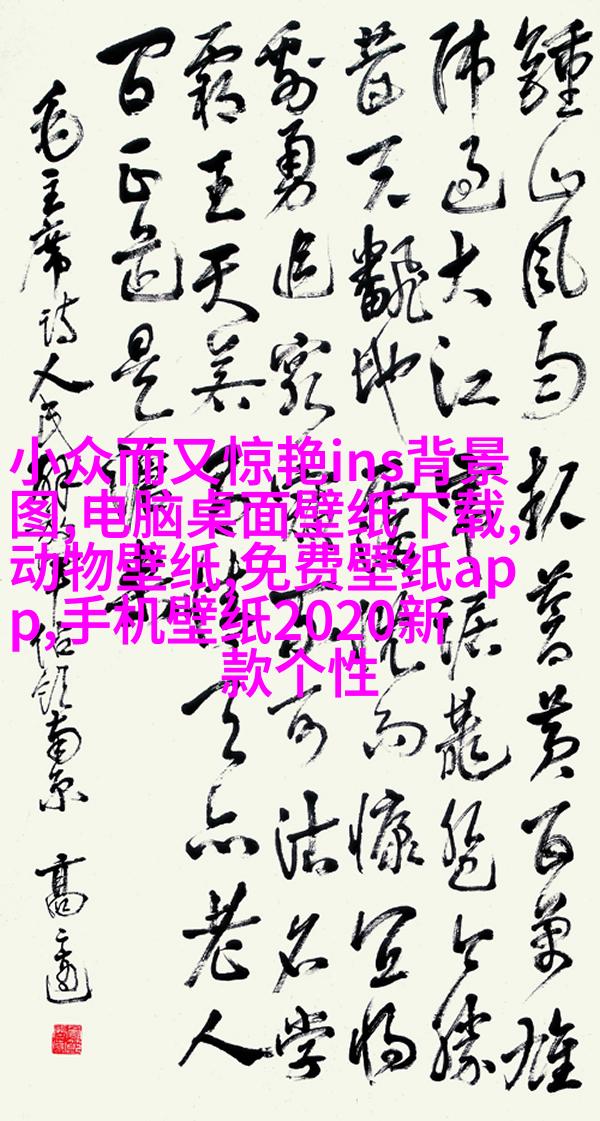 小众而又惊艳ins背景
图,电脑桌面壁纸下载,
动物壁纸,免费壁纸ap
p,手机壁纸2020新
款个性
鍾山風雨起蒼黃百萬雄
師過大江虎踞龍盤今勝
昔天翻地覆慨而慷宜將
剩勇追窮寇不可沽名學
霸王天若有情天亦老人
间正道是滄桑
毛主席詩人民解放軍佔領南京 高